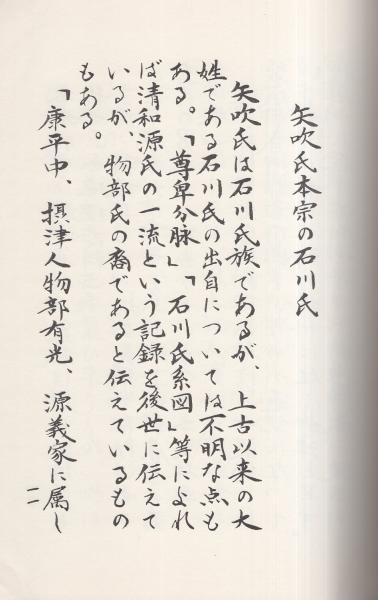 矢吹氏本宗の石川氏
矢吹氏は石川氏族であるが、上古以来の大
姓である石川氏の出自については不明な点も
ある。「尊卑分脉」「石川氏系図」等によれ
ば清和源氏の一流という記録を後世に伝えて
いるが、物部氏の裔であると伝えているもの
もある。
「康平中、摂津人物部有光、源義家に属し
一一